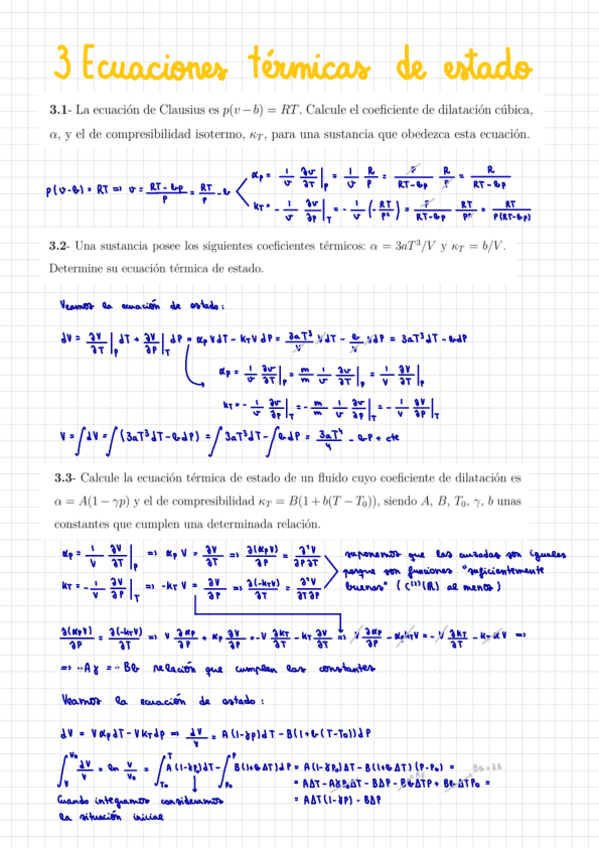 3 Ecuaciones térmicas de estado
3.1- La ecuación de Clausius es p(v − b) = RT. Calcule el coeficiente de dilatación cúbica,
α, y el de compresibilidad isotermo, κ_T, para una sustancia que obedezca esta ecuación.
p(v-b) = RT => v = (RT - bp)/p = RT/p - b
α_p = 1/v ∂v/∂T|_p = 1/v R/p = p/(RT-bp) R/p = R/(RT-bp)
k_T = - 1/v ∂v/∂p|_T = - 1/v (- RT/p²) = p/(RT-bp) RT/p² = RT/(p(RT-bp))
3.2- Una sustancia posee los siguientes coeficientes térmicos: α = 3aT³/V y κ_T = b/V.
Determine su ecuación térmica de estado.
Veamos la ecuación de estado:
dV = ∂V/∂T|_p dT + ∂V/∂P|_T dP = α_p V dT - k_T V dP = 3aT³/V V dT - b/V V dP = 3aT³dT - bdP
α_p = 1/v ∂v/∂T|_p = m/m 1/v ∂v/∂T|_p = 1/V ∂V/∂T|_p
k_T = - 1/v ∂v/∂p|_T = - m/m 1/v ∂v/∂p|_T = - 1/V ∂V/∂p|_T
V = ∫dV = ∫(3aT³dT - bdP) = ∫3aT³dT - ∫bdP = 3aT⁴/4 - bP + cte
3.3- Calcule la ecuación térmica de estado de un fluido cuyo coeficiente de dilatación es
α = A(1 − γp) y el de compresibilidad κ_T = B(1 + b(T − T₀)), siendo A, B, T₀, γ, b unas
constantes que cumplen una determinada relación.
α_p = 1/V ∂V/∂T|_p => α_p V = ∂V/∂T => ∂(α_p V)/∂P = ∂²V/∂P∂T
k_T = - 1/V ∂V/∂P|_T => -k_T V = ∂V/∂P => ∂(-k_T V)/∂T = ∂²V/∂T∂P
suponemos que las cruzadas son iguales
porque son funciones "suficientemente
buenas" (C⁽²⁾(R) al menos)
∂(α_p V)/∂P = ∂(-k_T V)/∂T => V ∂α_p/∂P + α_p ∂V/∂P = -V ∂k_T/∂T - k_T ∂V/∂T => V ∂α_p/∂P - α_p k_T V = -V ∂k_T/∂T - k_T α V =>
=> -Aγ = -Bb relación que cumplen las constantes
Veamos la ecuación de estado:
dV = Vα_p dT - Vk_T dp => dV/V = A(1-γp)dT - B(1+b(T-T₀))dP
∫ dV/V = ln V/V₀ = ∫ A(1-γp)dT - ∫ B(1+bΔT)dP = A(1-γP₀)ΔT - B(1+bΔT)(P-P₀) =
= AΔT - AγP₀ΔT - BΔP - BbΔTP + BbΔTP₀ =
= AΔT(1-γP) - BΔP
Cuando integramos consideramos
la situación inicial